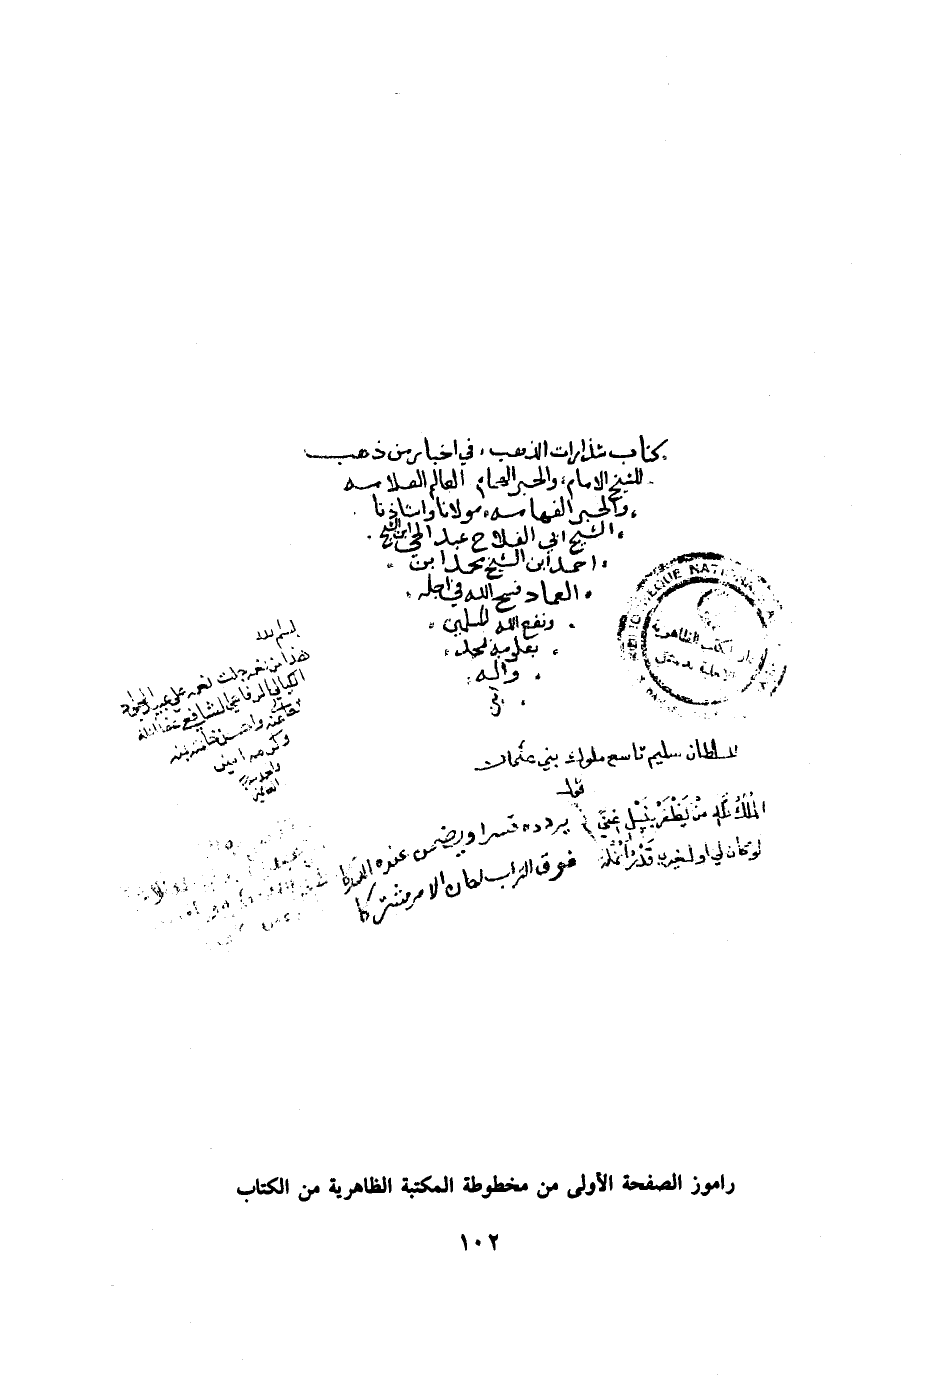 كتاب شذارات الذهب، في اخبار من ذهب
للشيخ الامام، والحبر الهمام العالم العلامه
والحبر الفهامه، مولانا واستاذنا
الشيخ ابي الفلاح عبد الحي ابن الشيخ
احمد ابن الشيخ محمد ابن
العماد فسح الله في اجله
ونفع الله المسلمين
بعلومه بمحمد
واله
امين
BIBLIOTHEQUE NATIONALE
دار الكتب الظاهرية
الاهلية بدمشق
بسم الله
هذا من نعم جلت نعمه على عبيد الجواد
الكيالي الرفاعي الشافعي عفا الله
عنه واحسن
وكرمه امين
للسلطان سليم تاسع ملوك بني عثمان
الْمُلْكُ لله مَنْ يَظْفَرْ بِنَيْلِ غِنًى يردده قسرا ويضمن عنده الدركا
لو كان لي او لغيري قَدْرُ أَنْمُلَةٍ فوق التراب لكان الامر مشتركا
راموز الصفحة الأولى من مخطوطة المكتبة الظاهرية من الكتاب
١٠٢